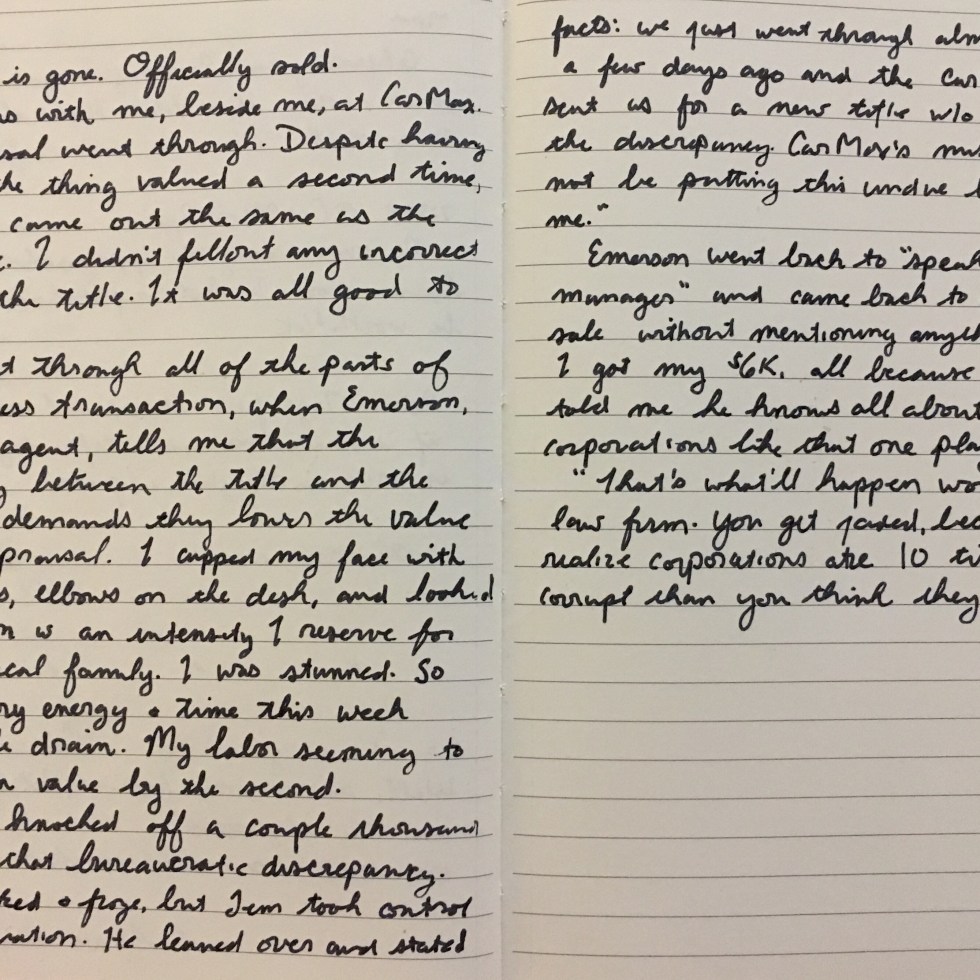 is gone. Officially sold.
with me, beside me, at CarMax.
went through. Despite having
the thing valued a second time,
came out the same as the
I didn't fillout any incorrect
the title. It was all good to
through all of the parts of
transaction, when Emerson,
agent, tells me that the
between the title and the
demands they lower the value
I cupped my face with
elbows on the desk, and looked
an intensity I reserve for
family. I was stunned. So
energy + time this week
drain. My labor seeming to
value by the second.
knocked off a couple thousand
that bureaucratic discrepancy.
+ froze, but Jem took control
He leaned over and stated
facts: we just went through
a few days ago and the
sent us for a new title w/o
the discrepancy. CarMax's
not be putting this undue
me."
Emerson went back to "speak
manager" and came back to
sale without mentioning
I got my $6K, all because
told me he knows all about
corporations like that one
"That's what'll happen
law firm. You get jaded,
realize corporations are 10
corrupt than you think they